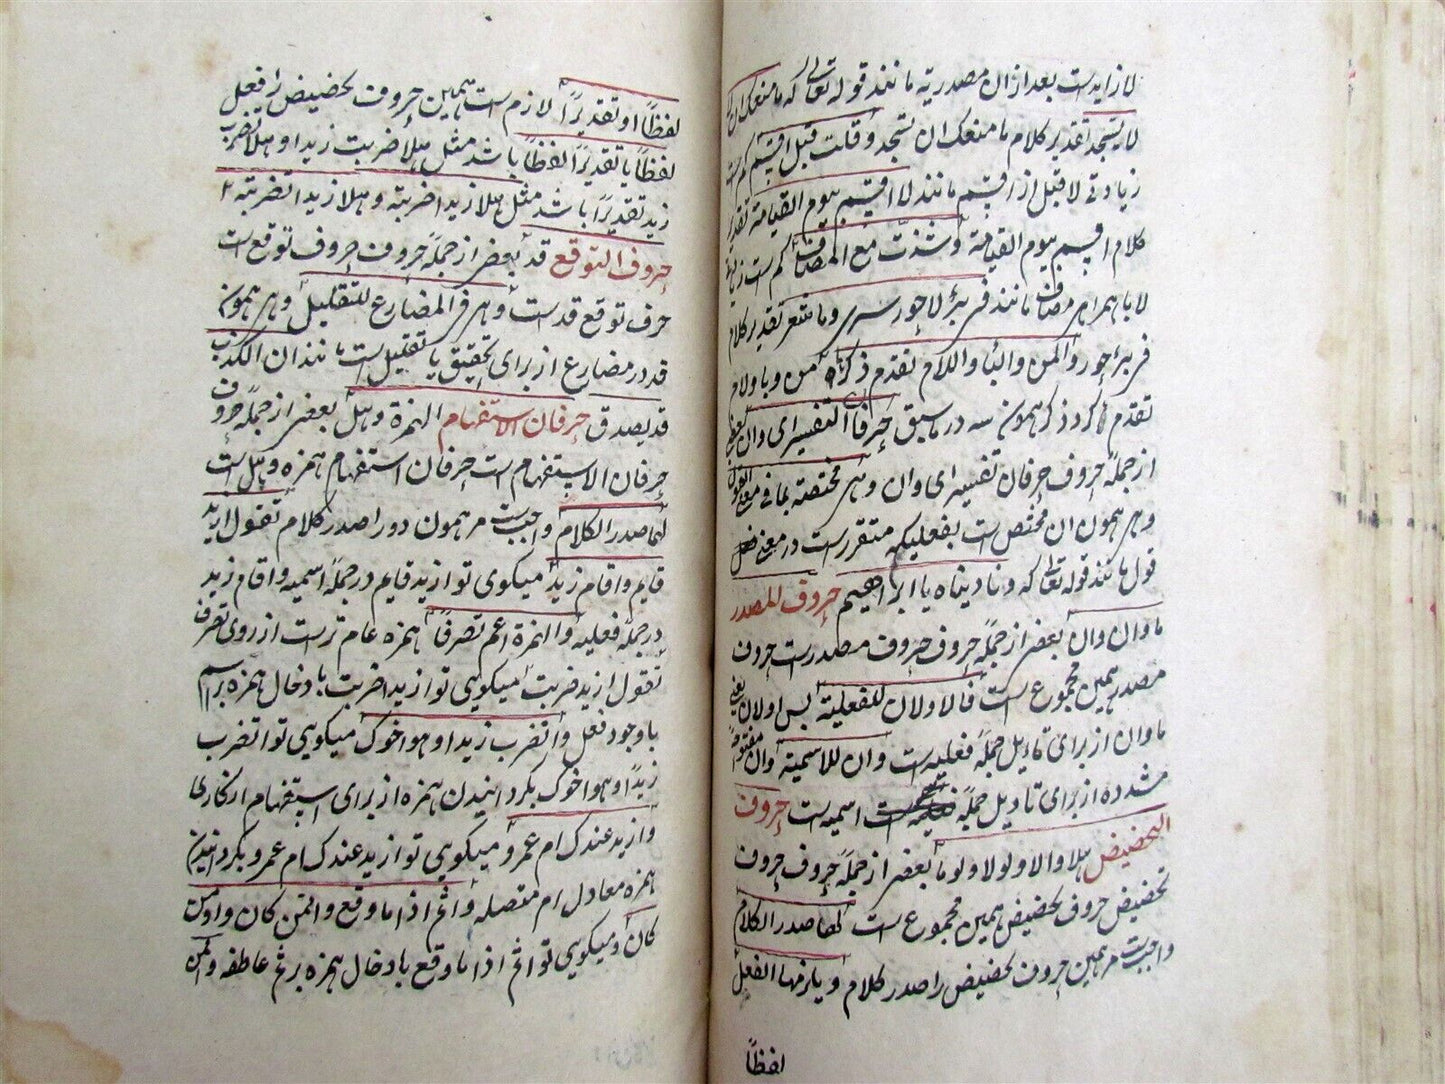 لا زایدست بعد از ان مصدریه مانند قوله تعالی که ما منعک ان لا
لا تسجد تقدیر کلام ما منعک ان تسجد وقلت قبل اقسم کم است
زیادتی لا قبل از اقسم مانند لا اقسم بیوم القیامة تقدیر
کلام اقسم بیوم القیامة وشذت مع المضاف کم است زیادتی
لا با همراهی مضاف مانند فی بئر لا حور سری وما شعر تقدیر کلام
فی بئر حور والمن والباء واللام تقدم ذکرها من وبا ولام
تقدم کرد ذکر همون سه در ما سبق حرفا التفسیر ای وان بعضی
از جملهٔ حروف حرفان تفسیر ای وان وهی مختصة بما فی معنی القول
وهی همون ان مختص است بفعلیکه متقررست در معنی
قول مانند قوله تعالی که ونادیناه یا ابراهیم حروف المصدر
ما وان وان بعضی از جملهٔ حروف حروف مصدرست حروف
مصدر همین مجموع است فالاولان للفعلیة پس اولان یعنی
ما وان از برای تاءیل جملهٔ فعلیه است وان للاسمیة وان مفتوحهٔ
مشدده از برای تاویل جملهٔ اسمیه است حروف
التحضیض هلا والا ولولا ولوما بعضی از جملهٔ حروف حروف
تحضیض حروف تحضیض همین مجموع است لها صدر الکلام
واجبست مر همین حروف تحضیض را صدر کلام ویلزمها الفعل
لفظاً
لفظاً او تقدیراً لازم است همین حروف تحضیض را فعل
لفظاً یا تقدیراً لفظاً باشد مثل هلا ضربت زیدا وهلا تضرب
زید تقدیراً باشد مثل هلا زیدا ضربته وهلا زیدا تضربه
حروف التوقع قد بعضی از جملهٔ حروف حروف توقع است
حرف توقع قد است وهی فی المضارع للتقلیل وهی همون
قد در مضارع از برای تحقیق یا تقلیل است مانند ان الکذوب
قد یصدق حرفان الاستفهام الهمزة وهل بعضی از جملهٔ حروف
حرفان الاستفهام است حرفان استفهام همزه وهل است
لهما صدر الکلام واجبست مر همون دو را صدر کلام تقول ازید
قایم واقام زید میکوی تو ازید قایم در جملهٔ اسمیه واقام زید
در جملهٔ فعلیه والهمزة اعم تصرفاً همزه عام ترست از روی تصرف
تقول ازیدا ضربت میکویی تو ازیدا ضربت با دخال همزه بر اسم
با وجود فعل واتضرب زیدا وهو اخوک میکویی تو اتضرب
زیداً وهو اخوک بکردانیدن همزه از برای استفهام انکاری
وازید عندک ام عمرو میکویی تو ازید عندک ام عمرو بکردانیدن
همزه معادل ام متصله واثم اذا ما وقع وافمن کان واومن
کان ومیکویی تو اثم اذا ما وقع با دخال همزه بر ثم عاطفه وافمن